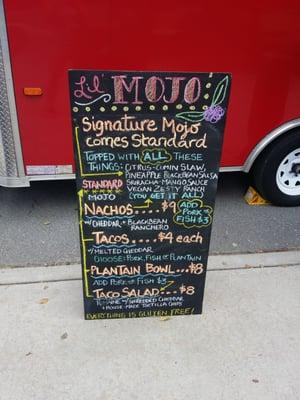 Lil' MOJO:
Signature Mojo
comes Standard
TOPPED WITH ALL THESE
THINGS: CITRUS-CUMIN SLAW,
PINEAPPLE BLACKBEAN SALSA
STANDARD SRIRACHA-MANGO SAUCE
MOJO VEGAN ZESTY RANCH
(YOU GET IT ALL)
NACHOS.....$9 ADD PORK or FISH $3
W/CHEDDAR + BLACKBEAN
RANCHERO
TACOS.....$4 each
W/MELTED CHEDDAR
CHOOSE: PORK, FISH or PLANTAIN
PLANTAIN BOWL...$8
ADD PORK or FISH $3
TACO SALAD...$8
ROMAINE W/ SHREDDED CHEDDAR
+ HOUSE-MADE TORTILLA CHIPS
EVERYTHING IS GLUTEN FREE!